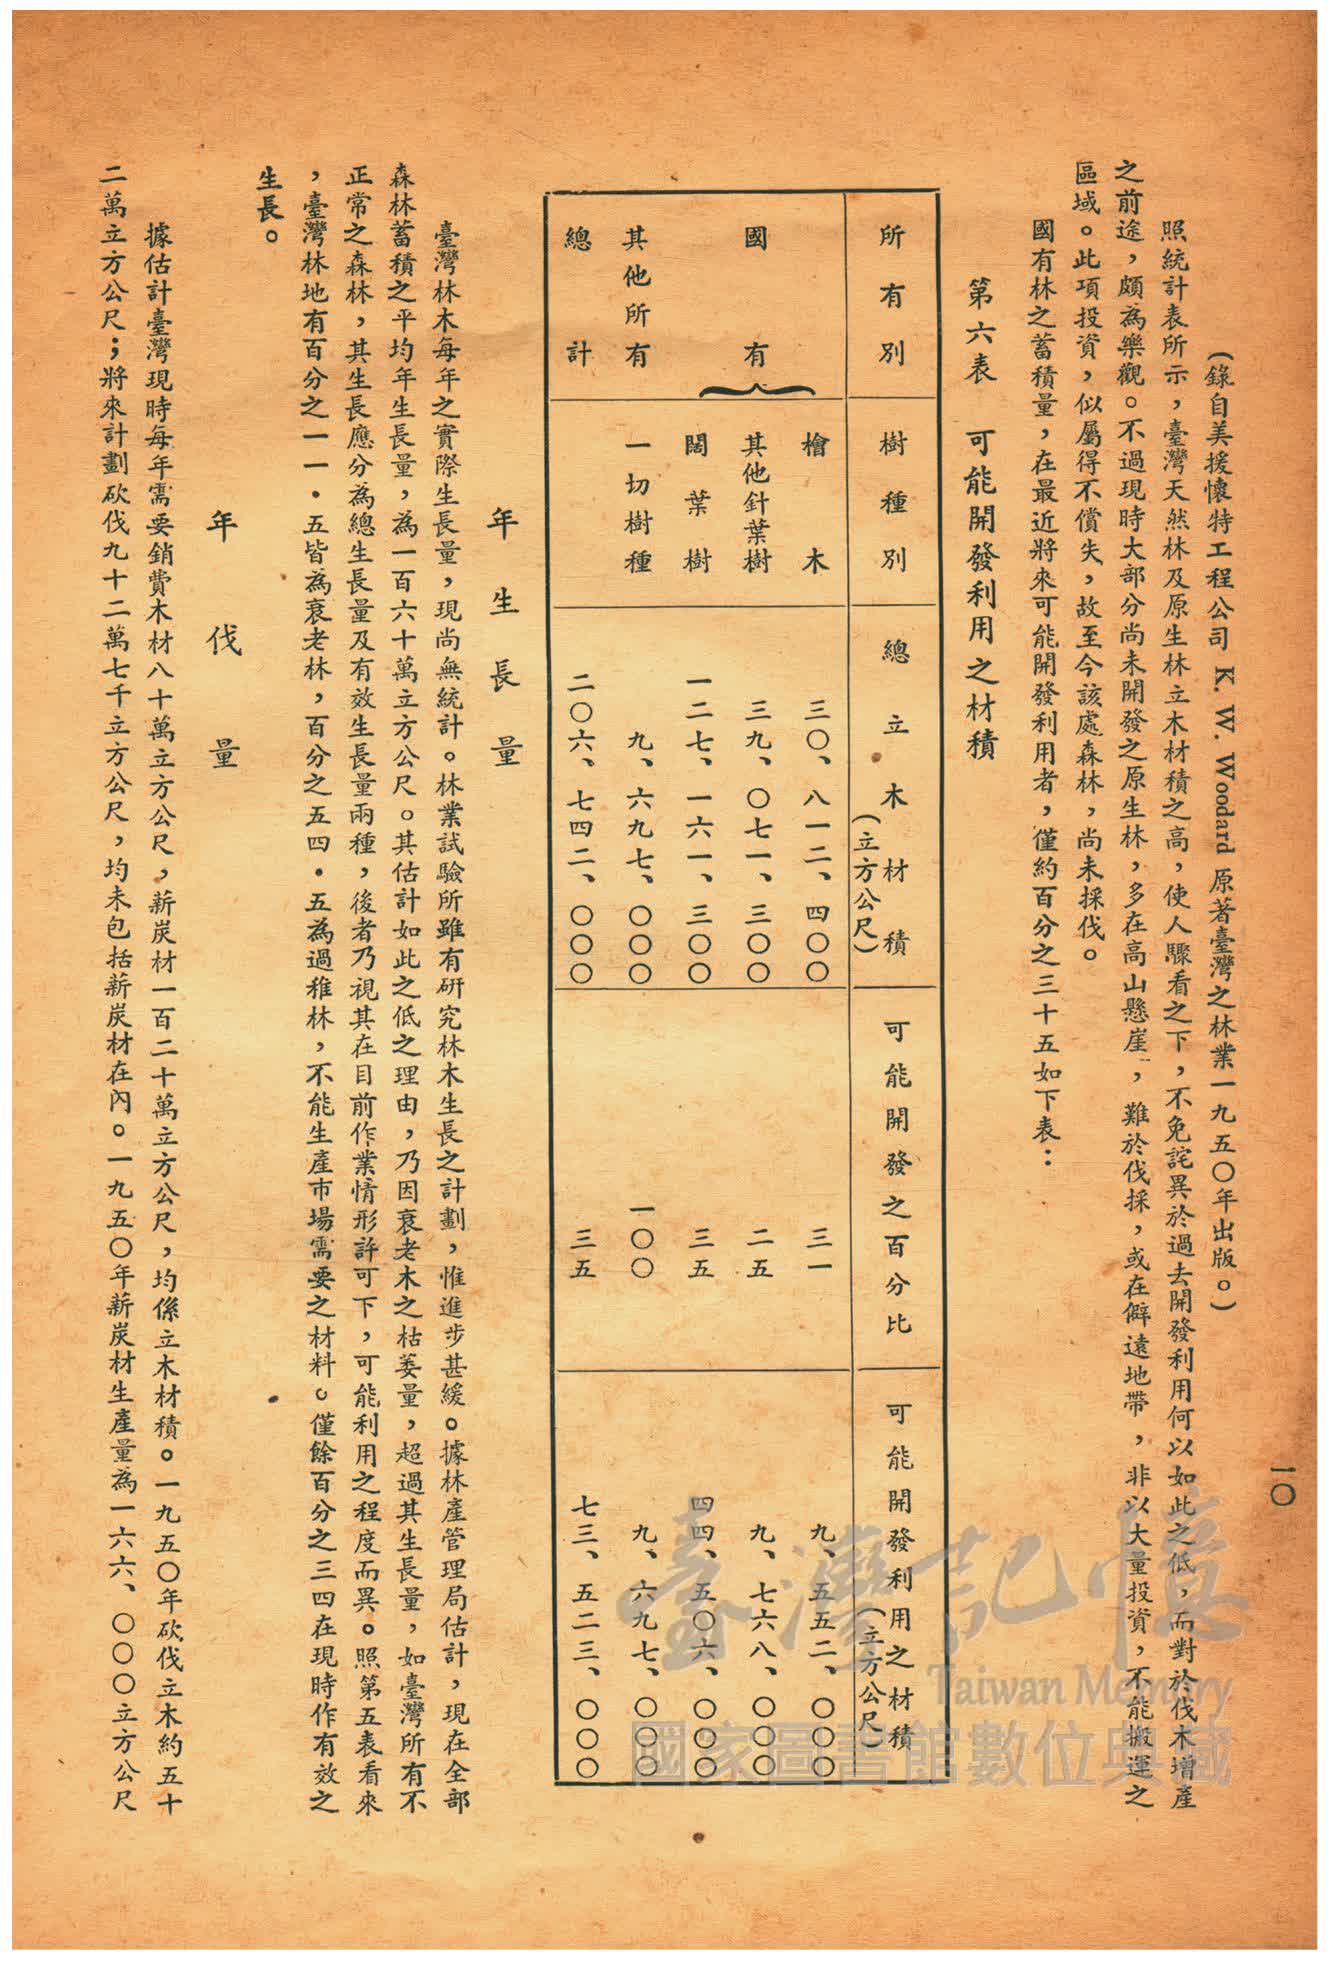 一〇
(錄自美援懷特工程公司 K. W. Woodard 原著臺灣之林業一九五〇年出版。)
照統計表所示，臺灣天然林及原生林立木材積之高，使人驟看之下，不免詫異於過去開發利用何以如此之低，而對於伐木增產
之前途，頗為樂觀。不過現時大部分尚未開發之原生林，多在高山懸崖，難於伐採，或在僻遠地帶，非以大量投資，不能搬運之
區域。此項投資，似屬得不償失，故至今該處森林，尚未採伐。
國有林之蓄積量，在最近將來可能開發利用者，僅約百分之三十五如下表：
第六表　可能開發利用之材積
所有別　樹種別　總立木材積(立方公尺)　可能開發之百分比　可能開發利用之材積(立方公尺)
國有　檜木　三〇、八一二、四〇〇　三一　九、五五二、〇〇〇
其他針葉樹　三九、〇七一、三〇〇　二五　九、七六八、〇〇〇
闊葉樹　一二七、一六一、三〇〇　三五　四四、五〇六、〇〇〇
其他所有　一切樹種　九、六九七、〇〇〇　一〇〇　九、六九七、〇〇〇
總計　二〇六、七四二、〇〇〇　三五　七三、五二三、〇〇〇
年生長量
臺灣林木每年之實際生長量，現尚無統計。林業試驗所雖有研究林木生長之計劃，惟進步甚緩。據林產管理局估計，現在全部
森林蓄積之平均年生長量，為一百六十萬立方公尺。其估計如此之低之理由，乃因衰老木之枯萎量，超過其生長量，如臺灣所有不
正常之森林，其生長應分為總生長量及有效生長量兩種，後者乃視其在目前作業情形許可下，可能利用之程度而異。照第五表看來
，臺灣林地有百分之一一・五皆為衰老林，百分之五四・五為過稚林，不能生產市場需要之材料。僅餘百分之三四在現時作有效之
生長。
年伐量
據估計臺灣現時每年需要銷費木材八十萬立方公尺，薪炭材一百二十萬立方公尺，均係立木材積。一九五〇年砍伐立木約五十
二萬立方公尺；將來計劃砍伐九十二萬七千立方公尺，均未包括薪炭材在內。一九五〇年薪炭材生產量為一六六、〇〇〇立方公尺
臺灣記憶
Taiwan Memory
國家圖書館數位典藏